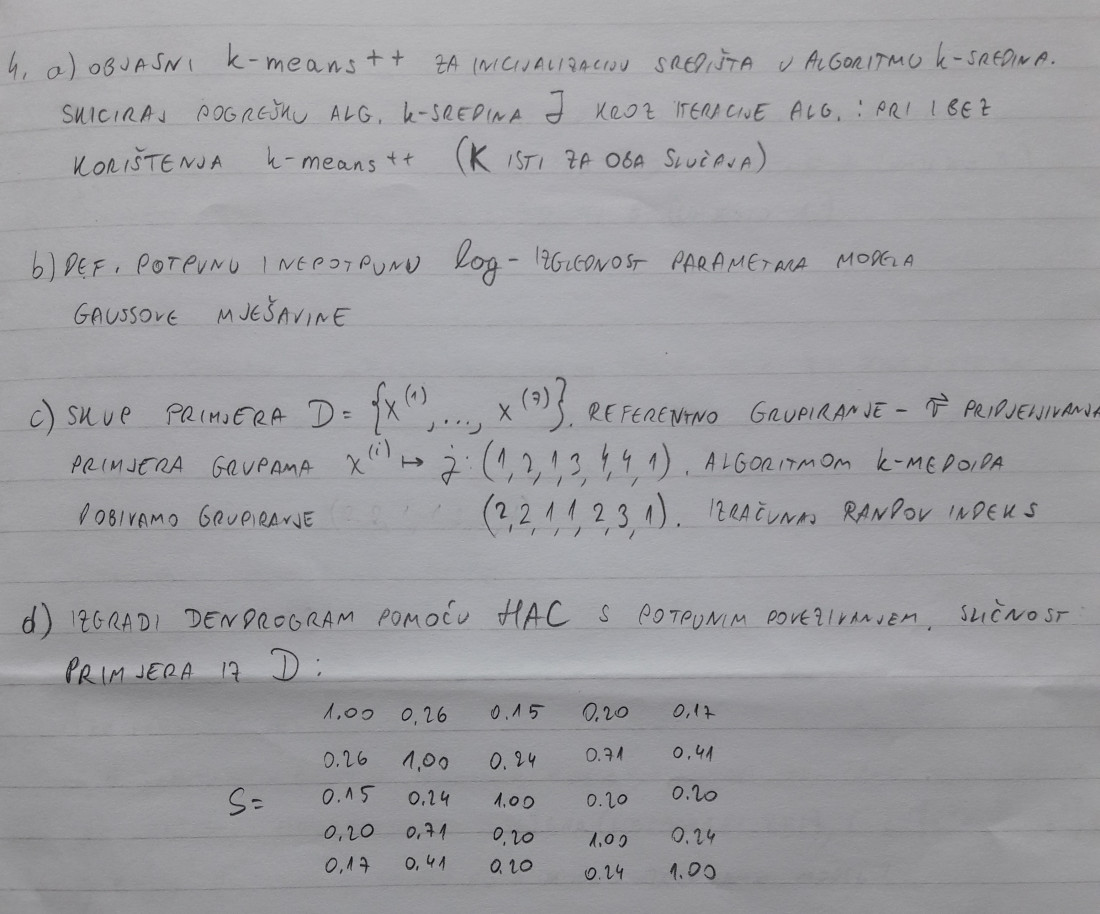 4. a) OBJASNI k-means++ ZA INICIJALIZACIJU SREDIŠTA U ALGORITMU k-SREDINA.
SKICIRAJ POGREŠKU ALG. k-SREDINA J KROZ ITERACIJE ALG. : PRI I BEZ
KORIŠTENJA k-means++ (K ISTI ZA OBA SLUČAJA)
b) DEF. POTPUNU I NEPOTPUNU log-IZGLEDNOST PARAMETARA MODELA
GAUSSOVE MJEŠAVINE
c) SKUP PRIMJERA D = {x^(1), ..., x^(7)}. REFERENTNO GRUPIRANJE - V⃗ PRIDJELJIVANJA
PRIMJERA GRUPAMA x^(i) ↦ j: (1,2,1,3,4,4,1). ALGORITMOM k-MEDOIDA
DOBIVAMO GRUPIRANJE (2,2,1,1,2,3,1). IZRAČUNAJ RANDOV INDEKS
d) IZGRADI DENDROGRAM POMOĆU HAC S POTPUNIM POVEZIVANJEM. SLIČNOST
PRIMJERA IZ D:
1.00 0,26 0.15 0,20 0,17
0.26 1,00 0.24 0.71 0,41
S= 0.15 0,24 1.00 0.20 0.20
0,20 0,71 0,20 1,00 0.24
0,17 0,41 0.20 0.24 1.00